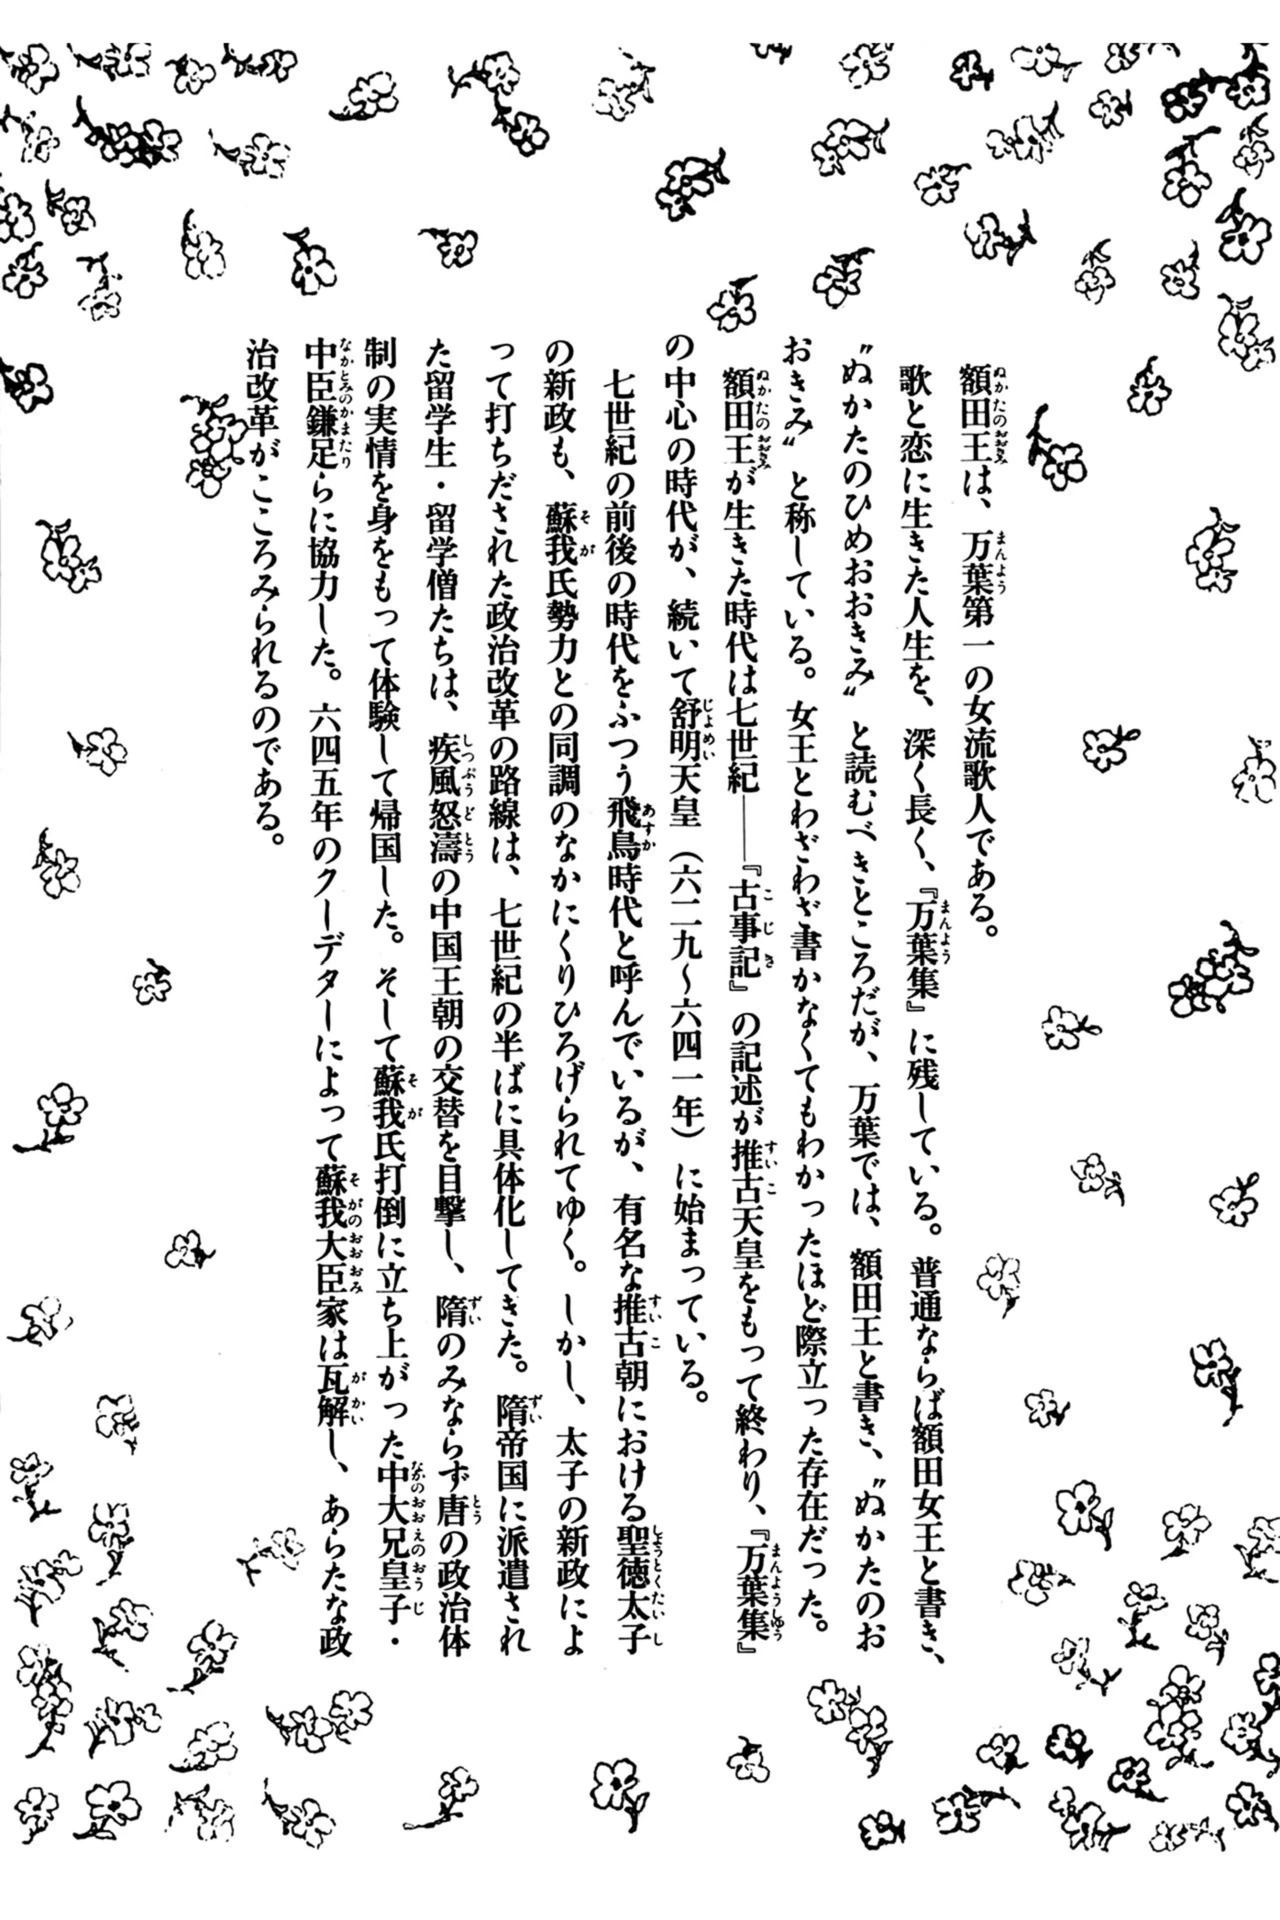 額田王は、万葉第一の女流歌人である。
歌と恋に生きた人生を、深く長く、『万葉集』に残している。普通ならば額田女王と書き、
〝ぬかたのひめおおきみ〟と読むべきところだが、万葉では、額田王と書き、〝ぬかたのお
おきみ〟と称している。女王とわざわざ書かなくてもわかったほど際立った存在だった。
額田王が生きた時代は七世紀――『古事記』の記述が推古天皇をもって終わり、『万葉集』
の中心の時代が、続いて舒明天皇（六二九～六四一年）に始まっている。
七世紀の前後の時代をふつう飛鳥時代と呼んでいるが、有名な推古朝における聖徳太子
の新政も、蘇我氏勢力との同調のなかにくりひろげられてゆく。しかし、太子の新政によ
って打ちだされた政治改革の路線は、七世紀の半ばに具体化してきた。隋帝国に派遣され
た留学生・留学僧たちは、疾風怒濤の中国王朝の交替を目撃し、隋のみならず唐の政治体
制の実情を身をもって体験して帰国した。そして蘇我氏打倒に立ち上がった中大兄皇子・
中臣鎌足らに協力した。六四五年のクーデターによって蘇我大臣家は瓦解し、あらたな政
治改革がこころみられるのである。